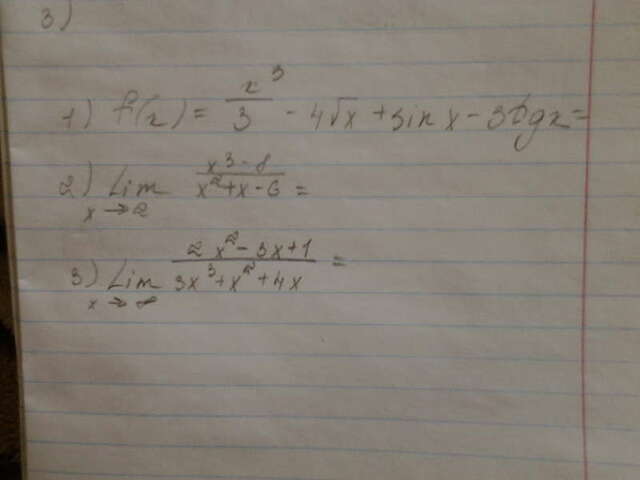 3)
1) f(x) = x³/3 - 4√x + sin x - 3tgx =
2) Lim x→2 x³-8 / x²+x-6 =
3) Lim x→∞ 2x²-3x+1 / 3x³+x²+4x =